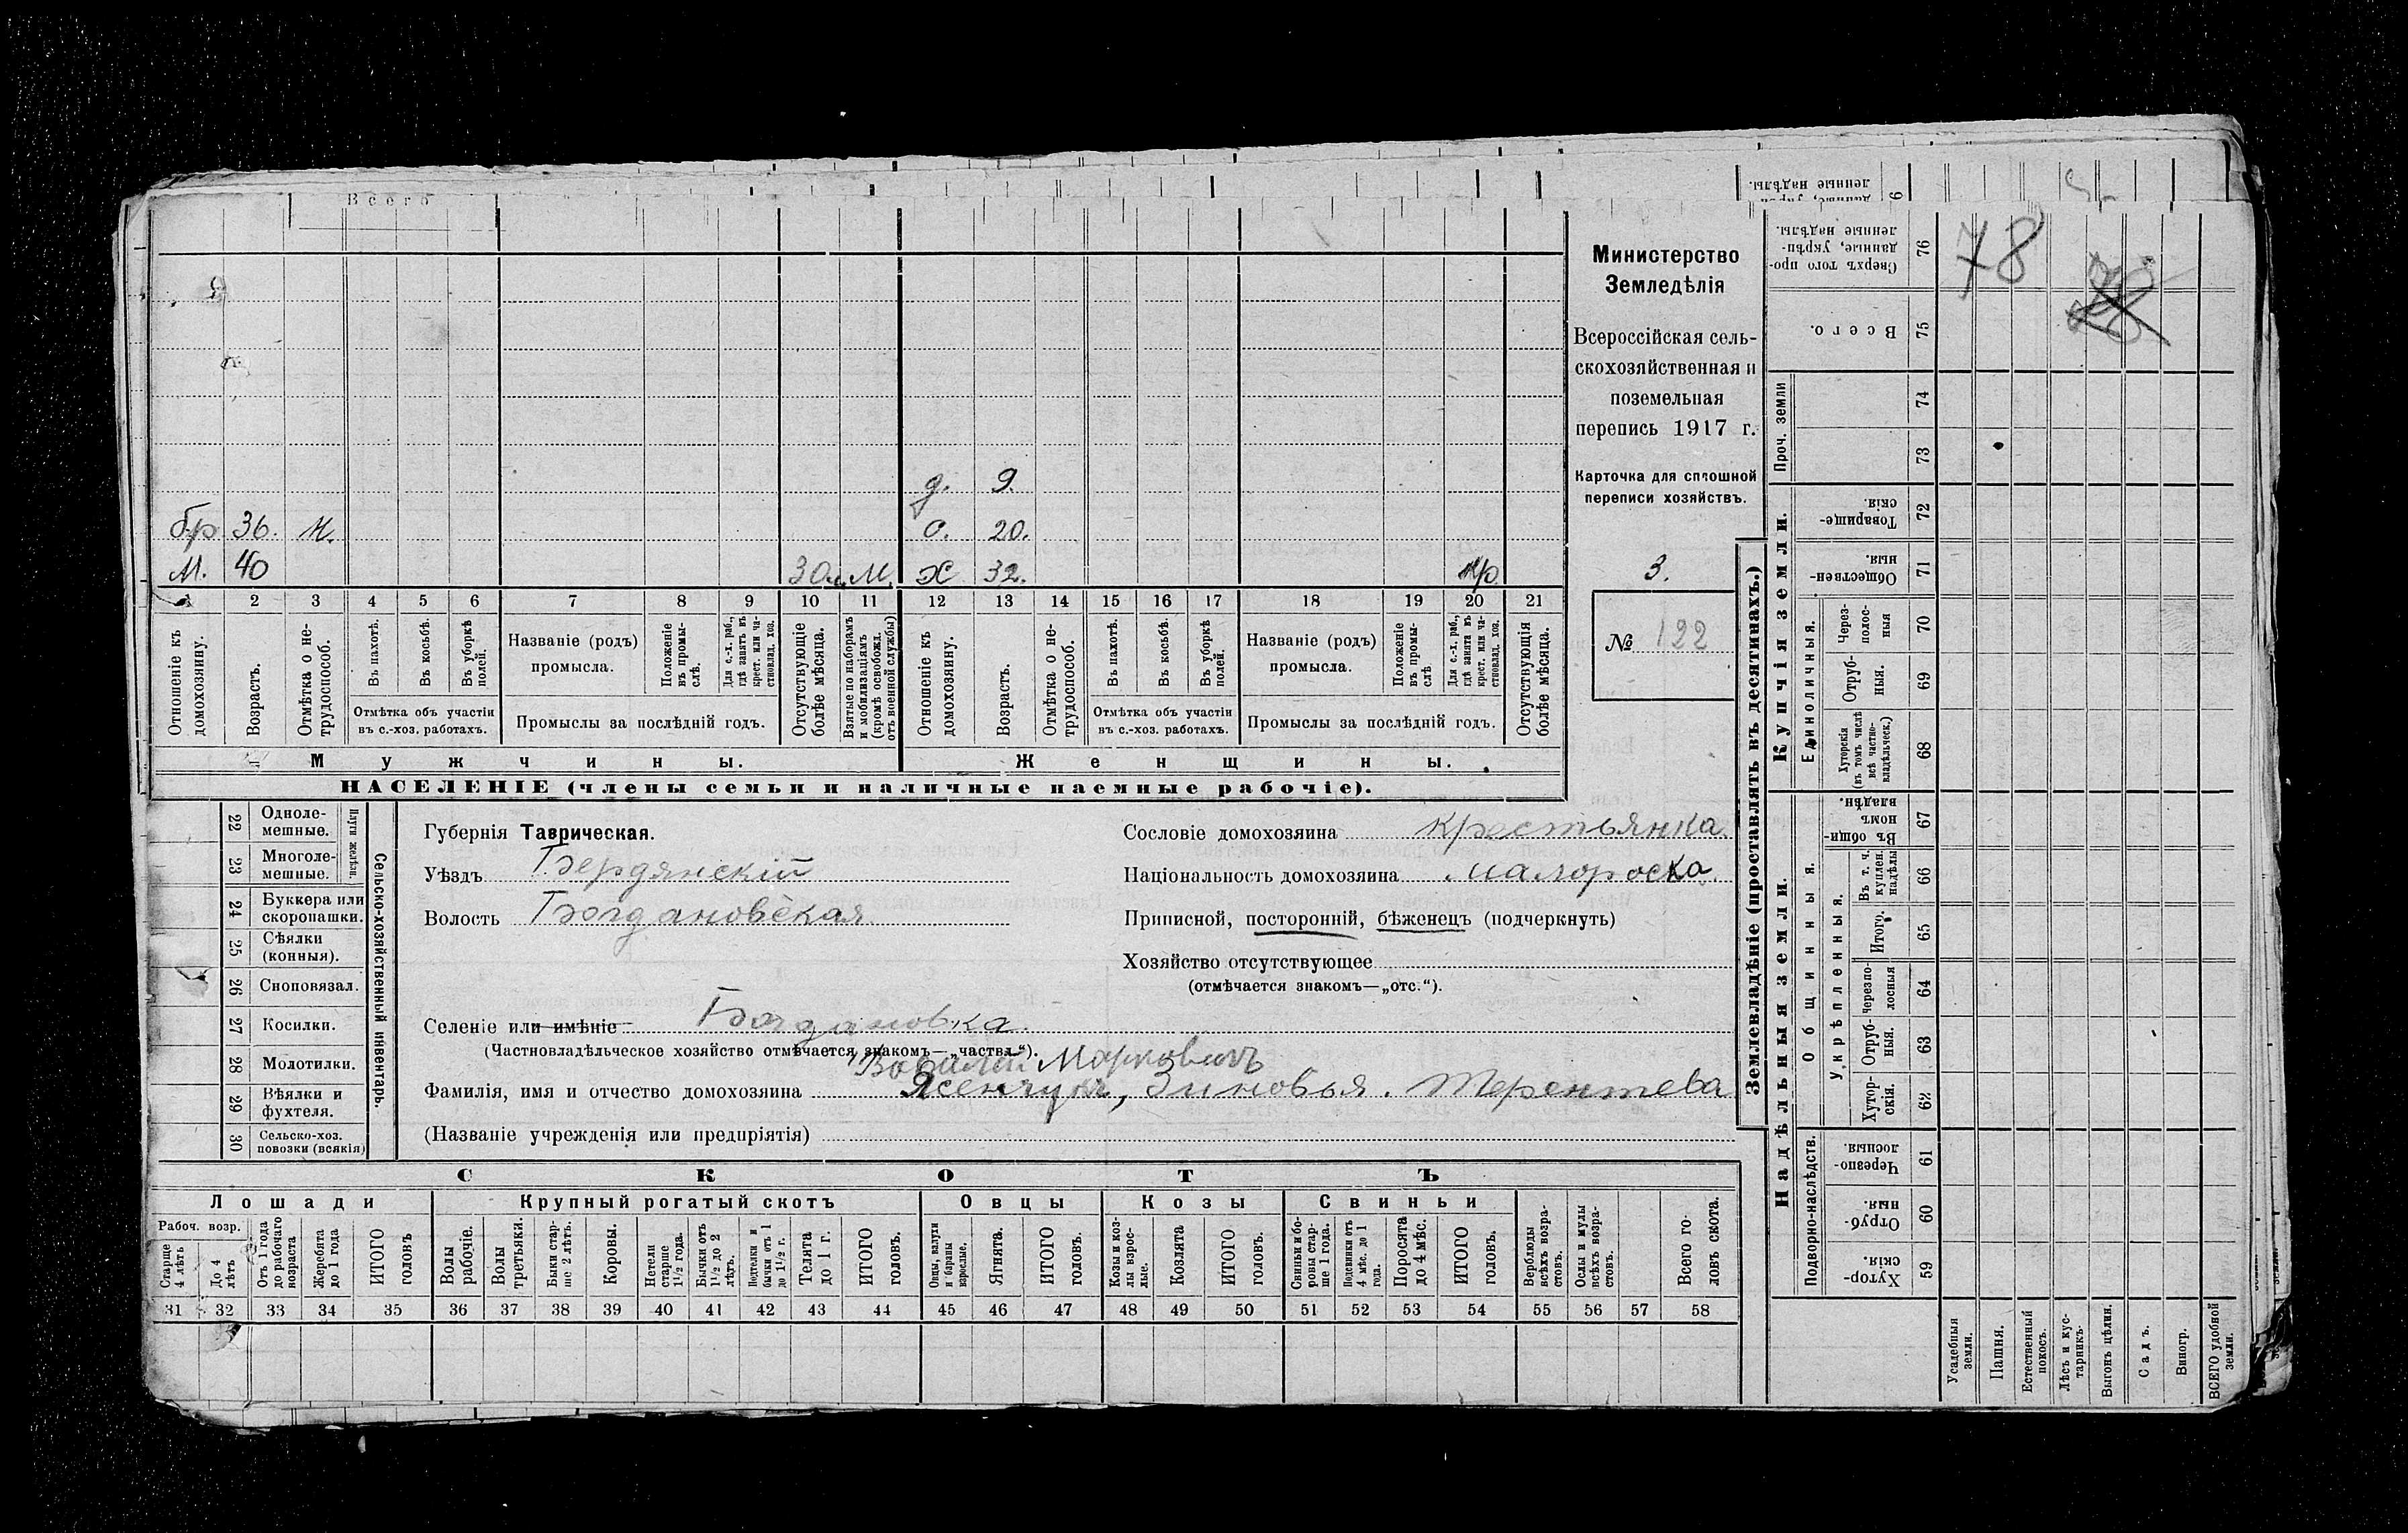 Всего
бр 36. н.
М. 40 30 м. М.
д. 9.
с. 20.
ж 32. кр.
1 2 3 4 5 6 7 8 9 10 11 12 13 14 15 16 17 18 19 20 21
Отношеніе къ домохозяину.
Возрастъ.
Отмѣтка о не-
трудоспособ.
Въ пахотѣ.
Въ косьбѣ.
Въ уборкѣ полей.
Отмѣтка объ участіи
въ с.-хоз. работахъ.
Названіе (родъ)
промысла.
Положеніе въ промы-
слѣ.
Для с.-х. раб.,
гдѣ занятъ въ
крест. или ча-
стновлад. хоз.
Промыслы за послѣдній годъ.
Отсутствующіе
болѣе мѣсяца.
Взятые по наборамъ
и мобилизаціямъ
(кромѣ освобожд.
отъ военной службы)
Отношеніе къ
домохозяину.
Возрастъ.
Отмѣтка о не-
трудоспособ.
Въ пахотѣ.
Въ косьбѣ.
Въ уборкѣ полей.
Отмѣтка объ участіи
въ с.-хоз. работахъ.
Названіе (родъ)
промысла.
Положеніе
въ промы-
слѣ
Для с.-х. раб.,
гдѣ занята въ
крест. или ча-
стновлад. хоз.
Промыслы за послѣдній годъ.
Отсутствующія
болѣе мѣсяца.
Мужчины.
Женщины.
НАСЕЛЕНІЕ (члены семьи и наличные наемные рабочіе).
Министерство
Земледѣлія
Всероссійская сель-
скохозяйственная и
поземельная
перепись 1917 г.
Карточка для сплошной
переписи хозяйствъ.
3.
№ 122
22 Одноле-
мешные.
23 Многоле-
мешные.
Плуги желѣзн.
24 Буккера или
скоропашки.
25 Сѣялки
(конныя).
26 Сноповязал.
27 Косилки.
28 Молотилки.
29 Вѣялки и
фухтеля.
30 Сельско-хоз.
повозки (всякія)
Сельско-хозяйственный инвентарь.
Губернія Таврическая.
Уѣздъ Бердянскій
Волость Богдановская
Селеніе или имѣніе Богдановка.
(Частновладѣльческое хозяйство отмѣчается знакомъ—„частвл.“).
Марковичъ
Фамилія, имя и отчество домохозяина Ясенчукъ, Зиновья. Терентева
(Названіе учрежденія или предпріятія)
Сословіе домохозяина крестьянка.
Національность домохозяина малороска.
Приписной, посторонній, бѣженецъ (подчеркнуть)
Хозяйство отсутствующее
(отмѣчается знакомъ—„отс.“).
СКОТЪ
Лошади
Рабоч. возр.
Старше
4 лѣтъ
До 4
лѣтъ
Отъ 1 года
до рабочаго
возраста
Жеребята
до 1 года
ИТОГО
головъ
Крупный рогатый скотъ
Волы
рабочіе.
Волы
третьяки.
Быки стар-
ше 2 лѣтъ.
Коровы.
Нетели
старше
1½ года.
Бычки отъ
1½ до 2
лѣтъ.
Подтелки и
бычки отъ 1
до 1½ г.
Телята
до 1 г.
ИТОГО
головъ.
Овцы
Овцы, валухи
и бараны
взрослые.
Ягнята.
ИТОГО
головъ.
Козы
Козы и коз-
лы взрос-
лые.
Козлята
ИТОГО
головъ.
Свиньи
Свиньи и бо-
ровы стар-
ше 1 года.
Подсвинки отъ
4 мѣс. до 1
года.
Поросята
до 4 мѣс.
ИТОГО
головъ.
Верблюды
всѣхъ возра-
стовъ.
Ослы и мулы
всѣхъ возра-
стовъ.
Всего го-
ловъ скота.
31 32 33 34 35 36 37 38 39 40 41 42 43 44 45 46 47 48 49 50 51 52 53 54 55 56 57 58
Землевладѣніе (проставлять въ десятинахъ.)
ленные надѣлы.
78
76 Сверхъ того про-
данные, укрѣп-
ленные надѣлы.
75 Всего.
Проч. земли
74
73
Купчія земли.
72 Товарище-
скія.
71 Обществен-
ныя.
Единоличныя.
70 Через-
полос-
ныя
69 Отруб-
ныя.
68 Хуторскія
(въ томъ числѣ
всѣ частно-
владѣльческ.)
Надѣльныя земли.
Общинныя.
67 Въ общин-
номъ
владѣн.
Укрѣпленныя.
66 Въ т. ч.
куплен.
надѣлы
65 Итого.
64 Черезпо-
лосныя
63 Отруб-
ныя.
62 Хутор-
скія.
Подворно-наслѣдств.
61 Черезпо-
лосныя.
60 Отруб-
ныя.
59 Хутор-
скія.
Усадебныя
земли.
Пашня.
Естественный
покосъ.
Лѣсъ и кус-
тарникъ.
Выгонъ цѣлин.
Садъ.
Виногр.
ВСЕГО удобной
земли.